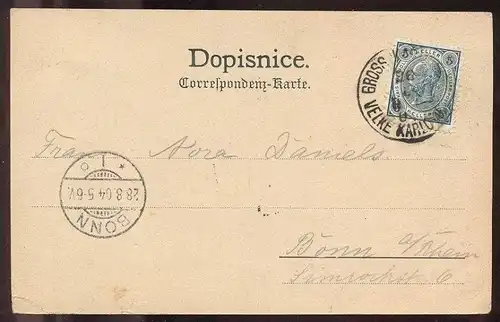 Dopisnice.
Correspondenz-Karte.
GROSS
VELKE KARLO
5 HELLER 5
Frau Nora Daniels
BONN
28.8.04.5-6V.
Bonn a/Rhein
Simrockst 6